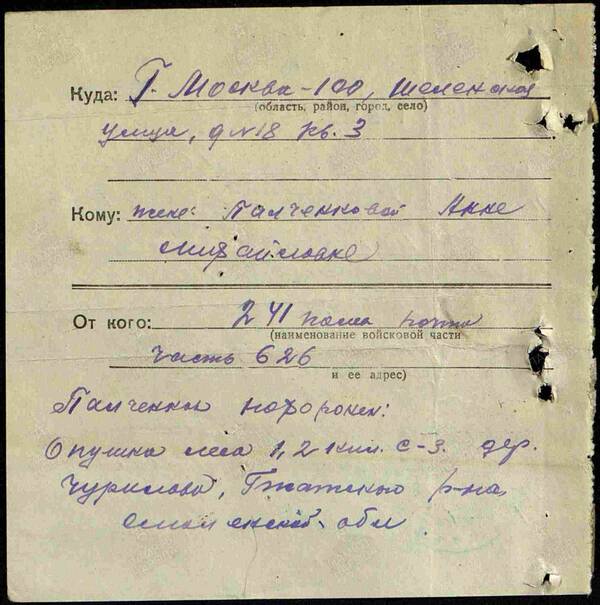 Куда: Г. Москва-100, Шеленская
(область, район, город, село)
улица, д N 18 кв. 3
Кому: жене: Палченковой Анне
Михайловне
От кого: 241 полев почта
(наименование войсковой части
часть 626
и ее адрес)
Палченков похоронен:
Опушка леса 1,2 клм. С-З. дер.
Чурилово, Гжатского р-на
Смоленской обл